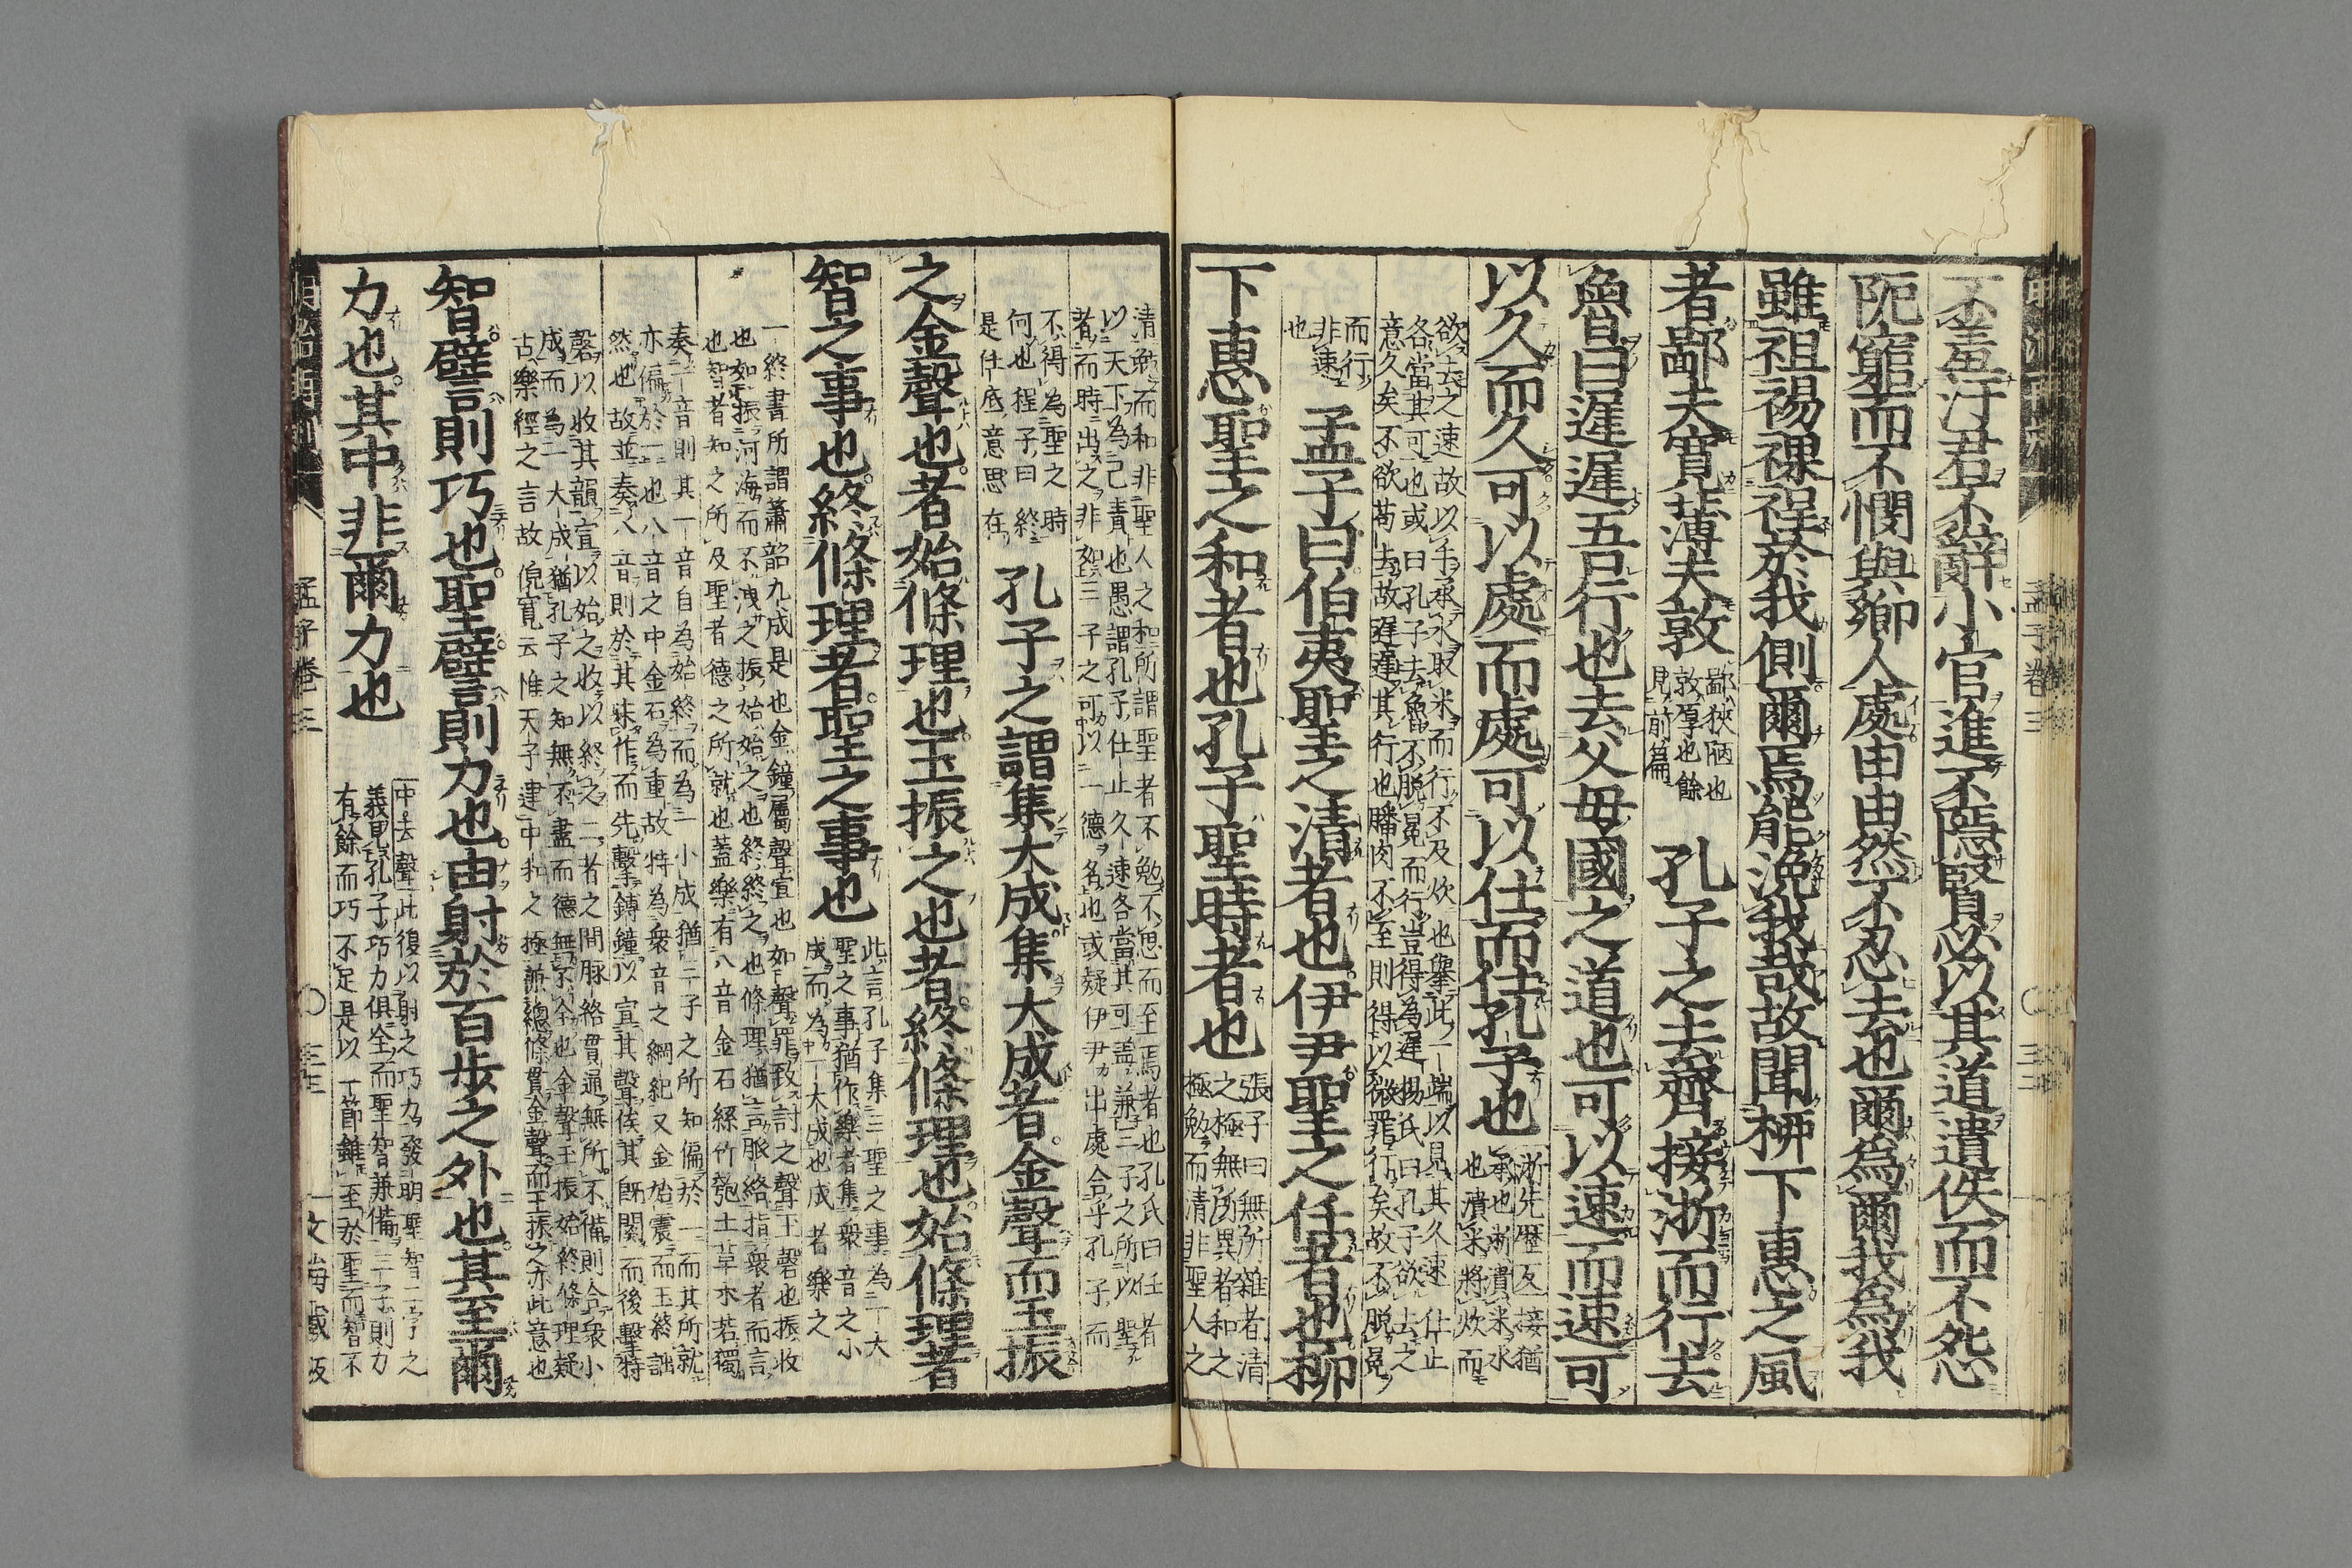 不羞汙君不辭小官進不隱賢必以其道遺佚而不怨
阨窮而不憫與鄉人處由由然不忍去也爾爲爾我爲我
雖袒裼裸裎於我側爾焉能浼我哉故聞柳下惠之風
者鄙夫寬薄夫敦
鄙狹陋也
敦厚也餘
見前篇
孔子之去齊接淅而行去
魯曰遲遲吾行也去父母國之道也可以速而速可
以久而久可以處而處可以仕而仕孔子也
淅先歷反接猶
承也淅漬米水
也漬米將炊而
欲去之速故以手承水取米而行不及炊也舉此一端以見其久速仕止
各當其可也或曰孔子去魯不脫冕而行豈得為遲楊氏曰孔子欲去之
意久矣不欲苟去故遲遲其行也膰肉不至則得以微罪行矣故不脫冕
而行
非速
也
孟子曰伯夷聖之清者也伊尹聖之任者也柳
下惠聖之和者也孔子聖時者也
張子曰無所雜者清
之極無所異者和之
極勉而清非聖人之
清勉而和非聖人之和所謂聖者不勉不思而至焉者也孔氏曰任者
以天下為己責也愚謂孔子仕止久速各當其可蓋兼三子之所以聖
者而時出之非如三子之可以一德名也或疑伊尹出處合乎孔子而
不得為聖之時
何也程子曰終
是任底意思在
孔子之謂集大成集大成者金聲而玉振
之金聲也者始條理也玉振之也者終條理也始條理者
智之事也終條理者聖之事也
此言孔子集三聖之事為一大
聖之事猶作樂者集衆音之小
成而為一大成也成者樂之
一終書所謂簫韶九成是也金鐘屬聲宣也如聲罪致討之聲玉磬也振收
也如振河海而不洩之振始始之也終終之也條理猶言脈絡指衆音而言
也智者知之所及聖者德之所就也蓋樂有八音金石絲竹匏土草木若獨
奏一音則其一音自為始終而為一小成猶三子之所知偏於一而其所就
亦偏於一也八音之中金石為重故特為衆音之綱紀又金始震而玉終詘
然也故並奏八音則於其未作而先擊鎛鐘以宣其聲俟其既闋而後擊特
磬以收其韻宣以始之收以終之二者之間脈絡貫通無所不備則合衆小
成而為一大成猶孔子之知無不盡而德無不全也金聲玉振始終條理疑
古樂經之言故倪寬云惟天子建中和之極兼總條貫金聲而玉振之亦此意也
智譬則巧也聖譬則力也由射於百步之外也其至爾
力也其中非爾力也
中去聲此復以射之巧力發明聖智二字之
義見孔子巧力俱全而聖智兼備三子則力
有餘而巧不足是以一節雖至於聖而智不
孟子卷三